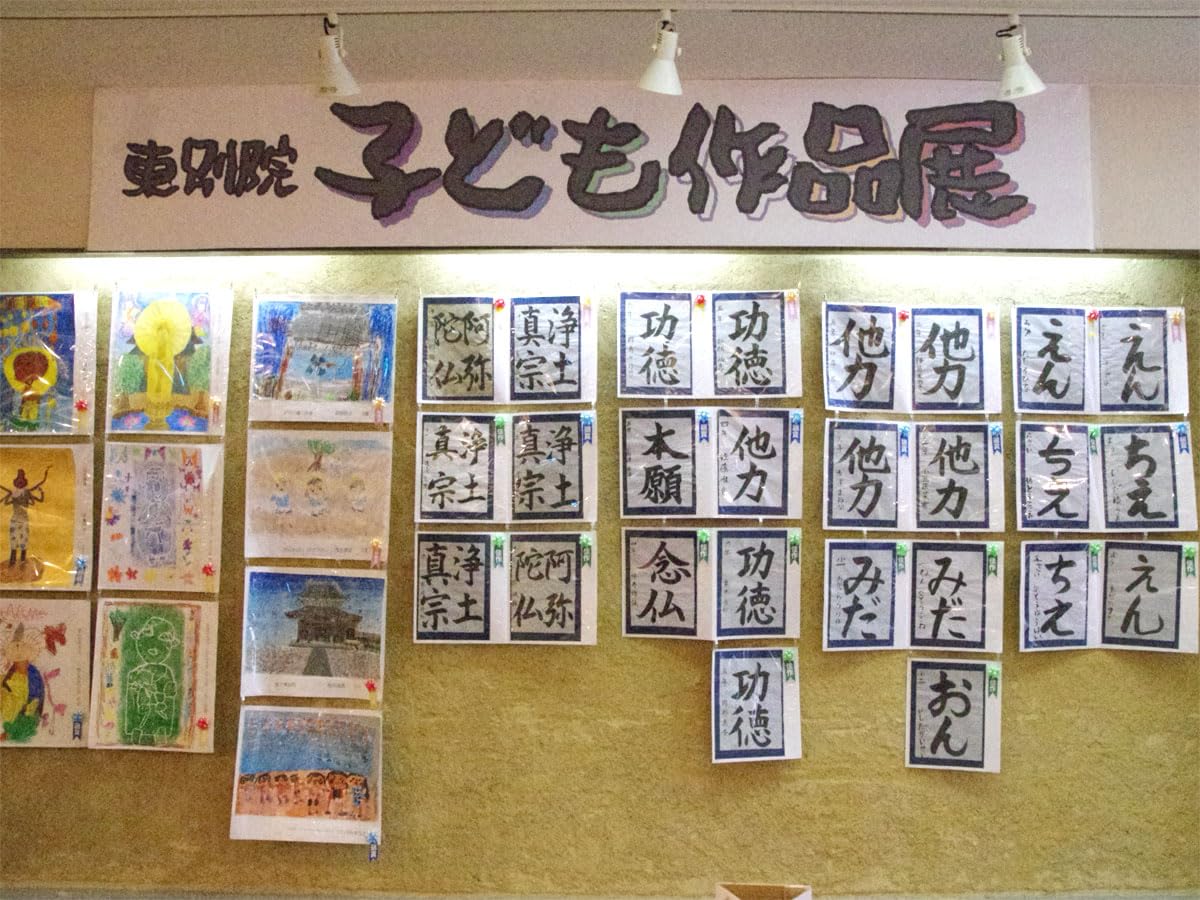 東別院 子ども作品展
阿弥陀仏
浄土真宗
功徳
功徳
他力
他力
えん
えん
浄土真宗
浄土真宗
本願
他力
他力
他力
ちえ
ちえ
浄土真宗
阿弥陀仏
念仏
功徳
みだ
みだ
ちえ
えん
功徳
おん